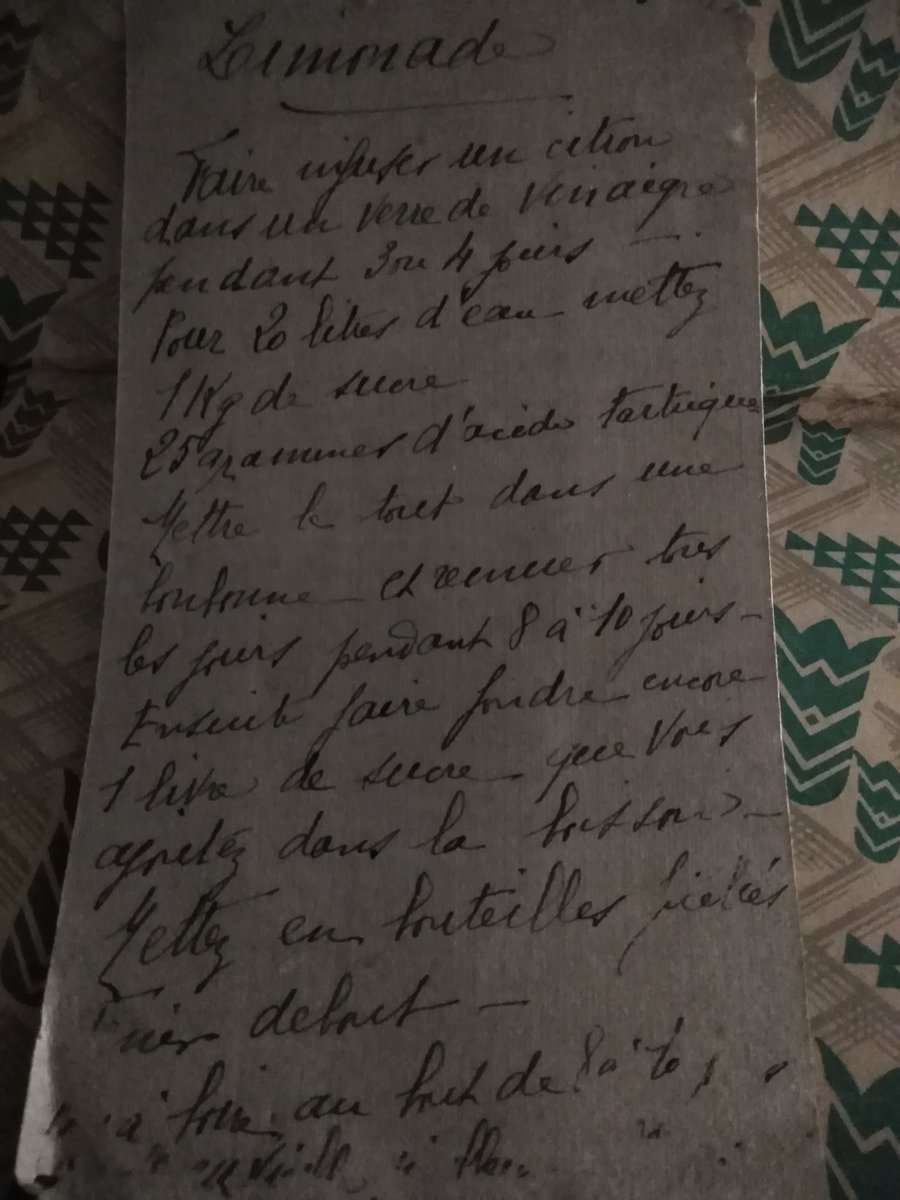 Limonade
Faire infuser un citron
dans un verre de vinaigre
pendant 3 ou 4 jours —
Pour 20 litres d'eau mettez
1 Kg de sucre
25 grammes d'acide tartrique
Mettre le tout dans une
bonbonne et remuer tous
les jours pendant 8 à 10 jours —
Ensuite faire fondre encore
1 livre de sucre que vous
ajoutez dans la boisson —
Mettez en bouteilles ficelés
debout —
à boire au bout de 8 à 10